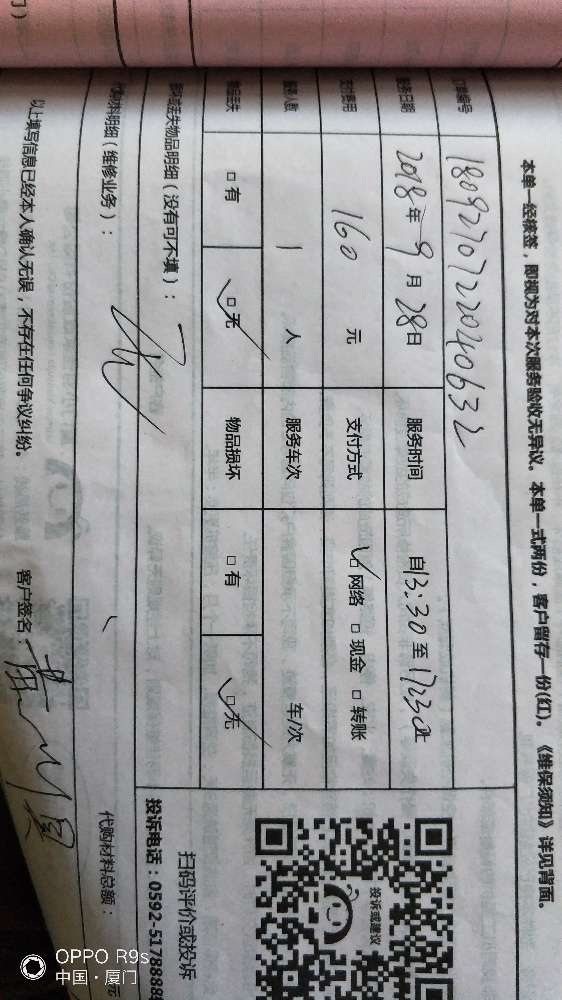 本单一经核签，即视为对本次服务验收无异议。本单一式两份，客户留存一份(红)。《维保须知》详见背面。
订单编号 1809270722040632
服务日期 2018年9月28日 服务时间 自13:30至17:30止
支付费用 160 元 支付方式 ☑网络 □现金 □转账
服务人数 1 人 服务车次 车/次
物品丢失 □有 ☑无 物品损坏 □有 ☑无
损坏或丢失物品明细（没有可不填）：
代购材料明细（维修业务）：
代购材料总额：
以上填写信息已经本人确认无误，不存在任何争议纠纷。 客户签名：
投诉或建议
扫码评价或投诉
投诉电话：0592-5178888
OPPO R9s
中国·厦门